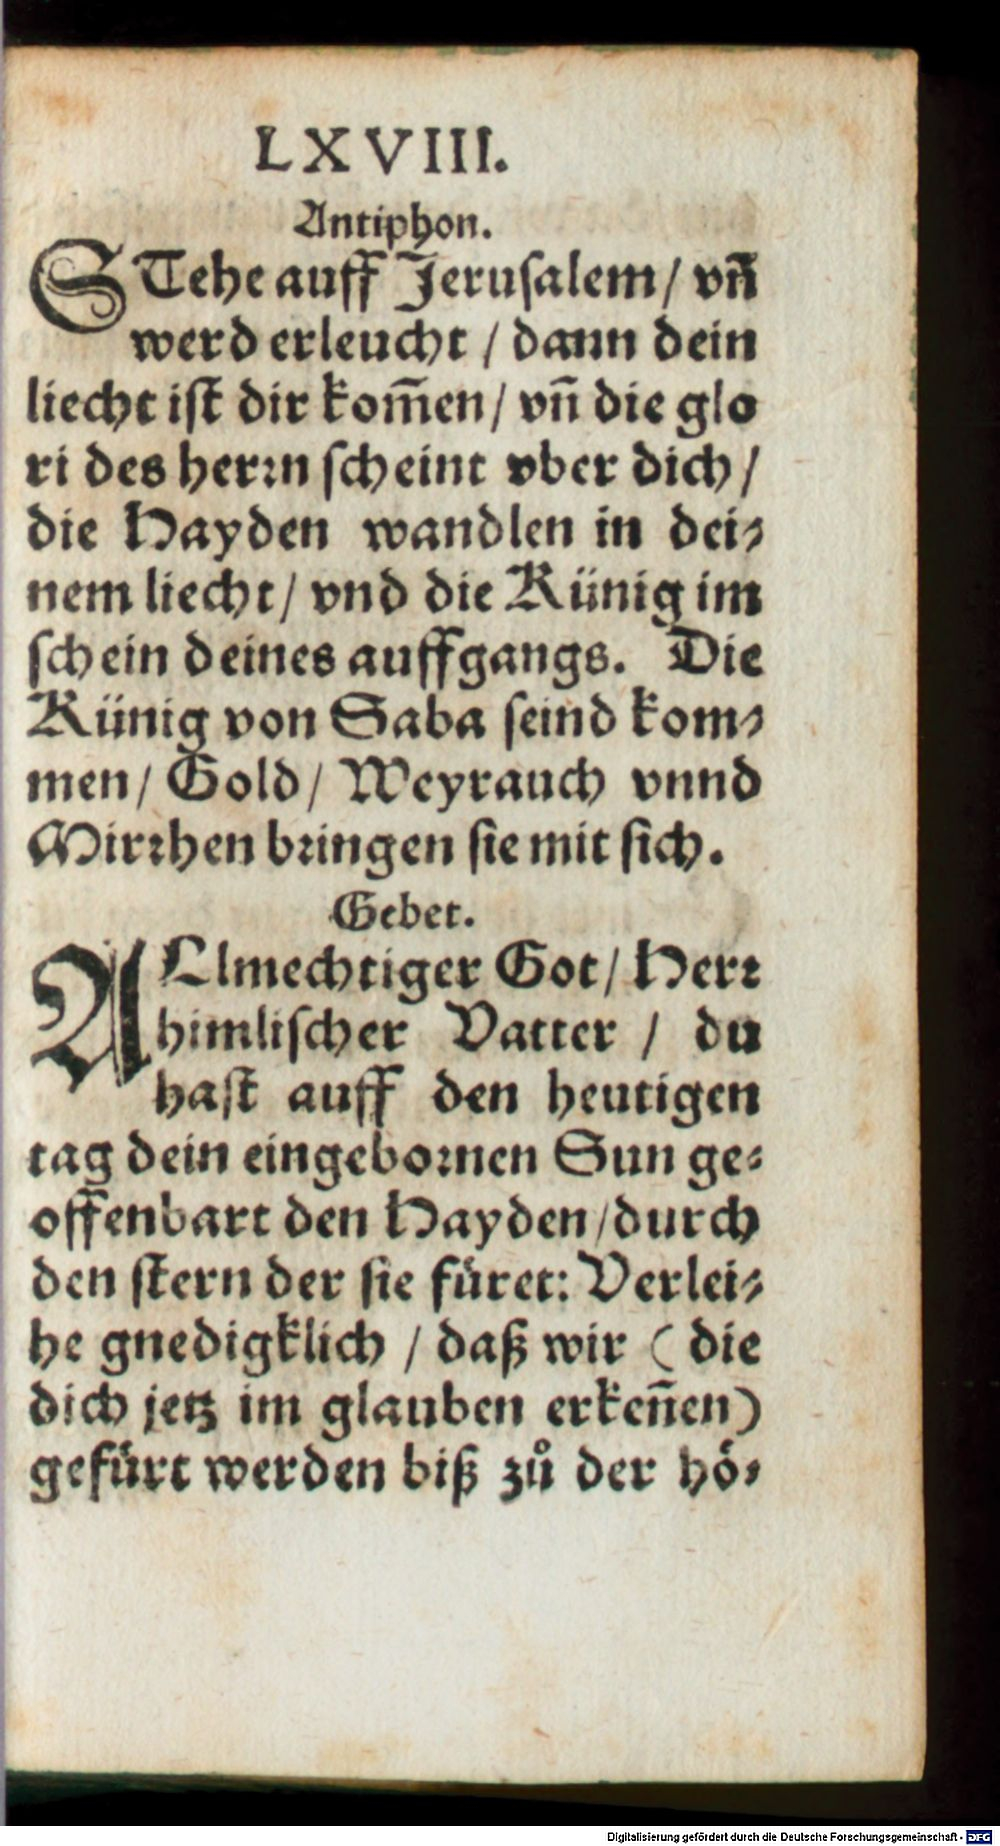 LXVIII.
Antiphon.
STehe auff Jerusalem / vñ
werd erleucht / dann dein
liecht ist dir kom̃en / vñ die glo
ri des herꝛn scheint vber dich /
die Hayden wandlen in dei⸗
nem liecht / vnd die Künig im
schein deines auffgangs. Die
Künig von Saba seind kom⸗
men / Gold / Weyrauch vnnd
Mirꝛhen bꝛingen sie mit sich.
Gebet.
ALlmechtiger Got / Herꝛ
himlischer Vatter / du
hast auff den heutigen
tag dein eingeboꝛnen Sun ge⸗
offenbart den Hayden / durch
den stern der sie füret: Verlei⸗
he gnedigklich / daß wir ( die
dich jetz im glauben erkeñen)
gefürt werden biß zů der hö⸗
Digitalisierung gefördert durch die Deutsche Forschungsgemeinschaft - DFG